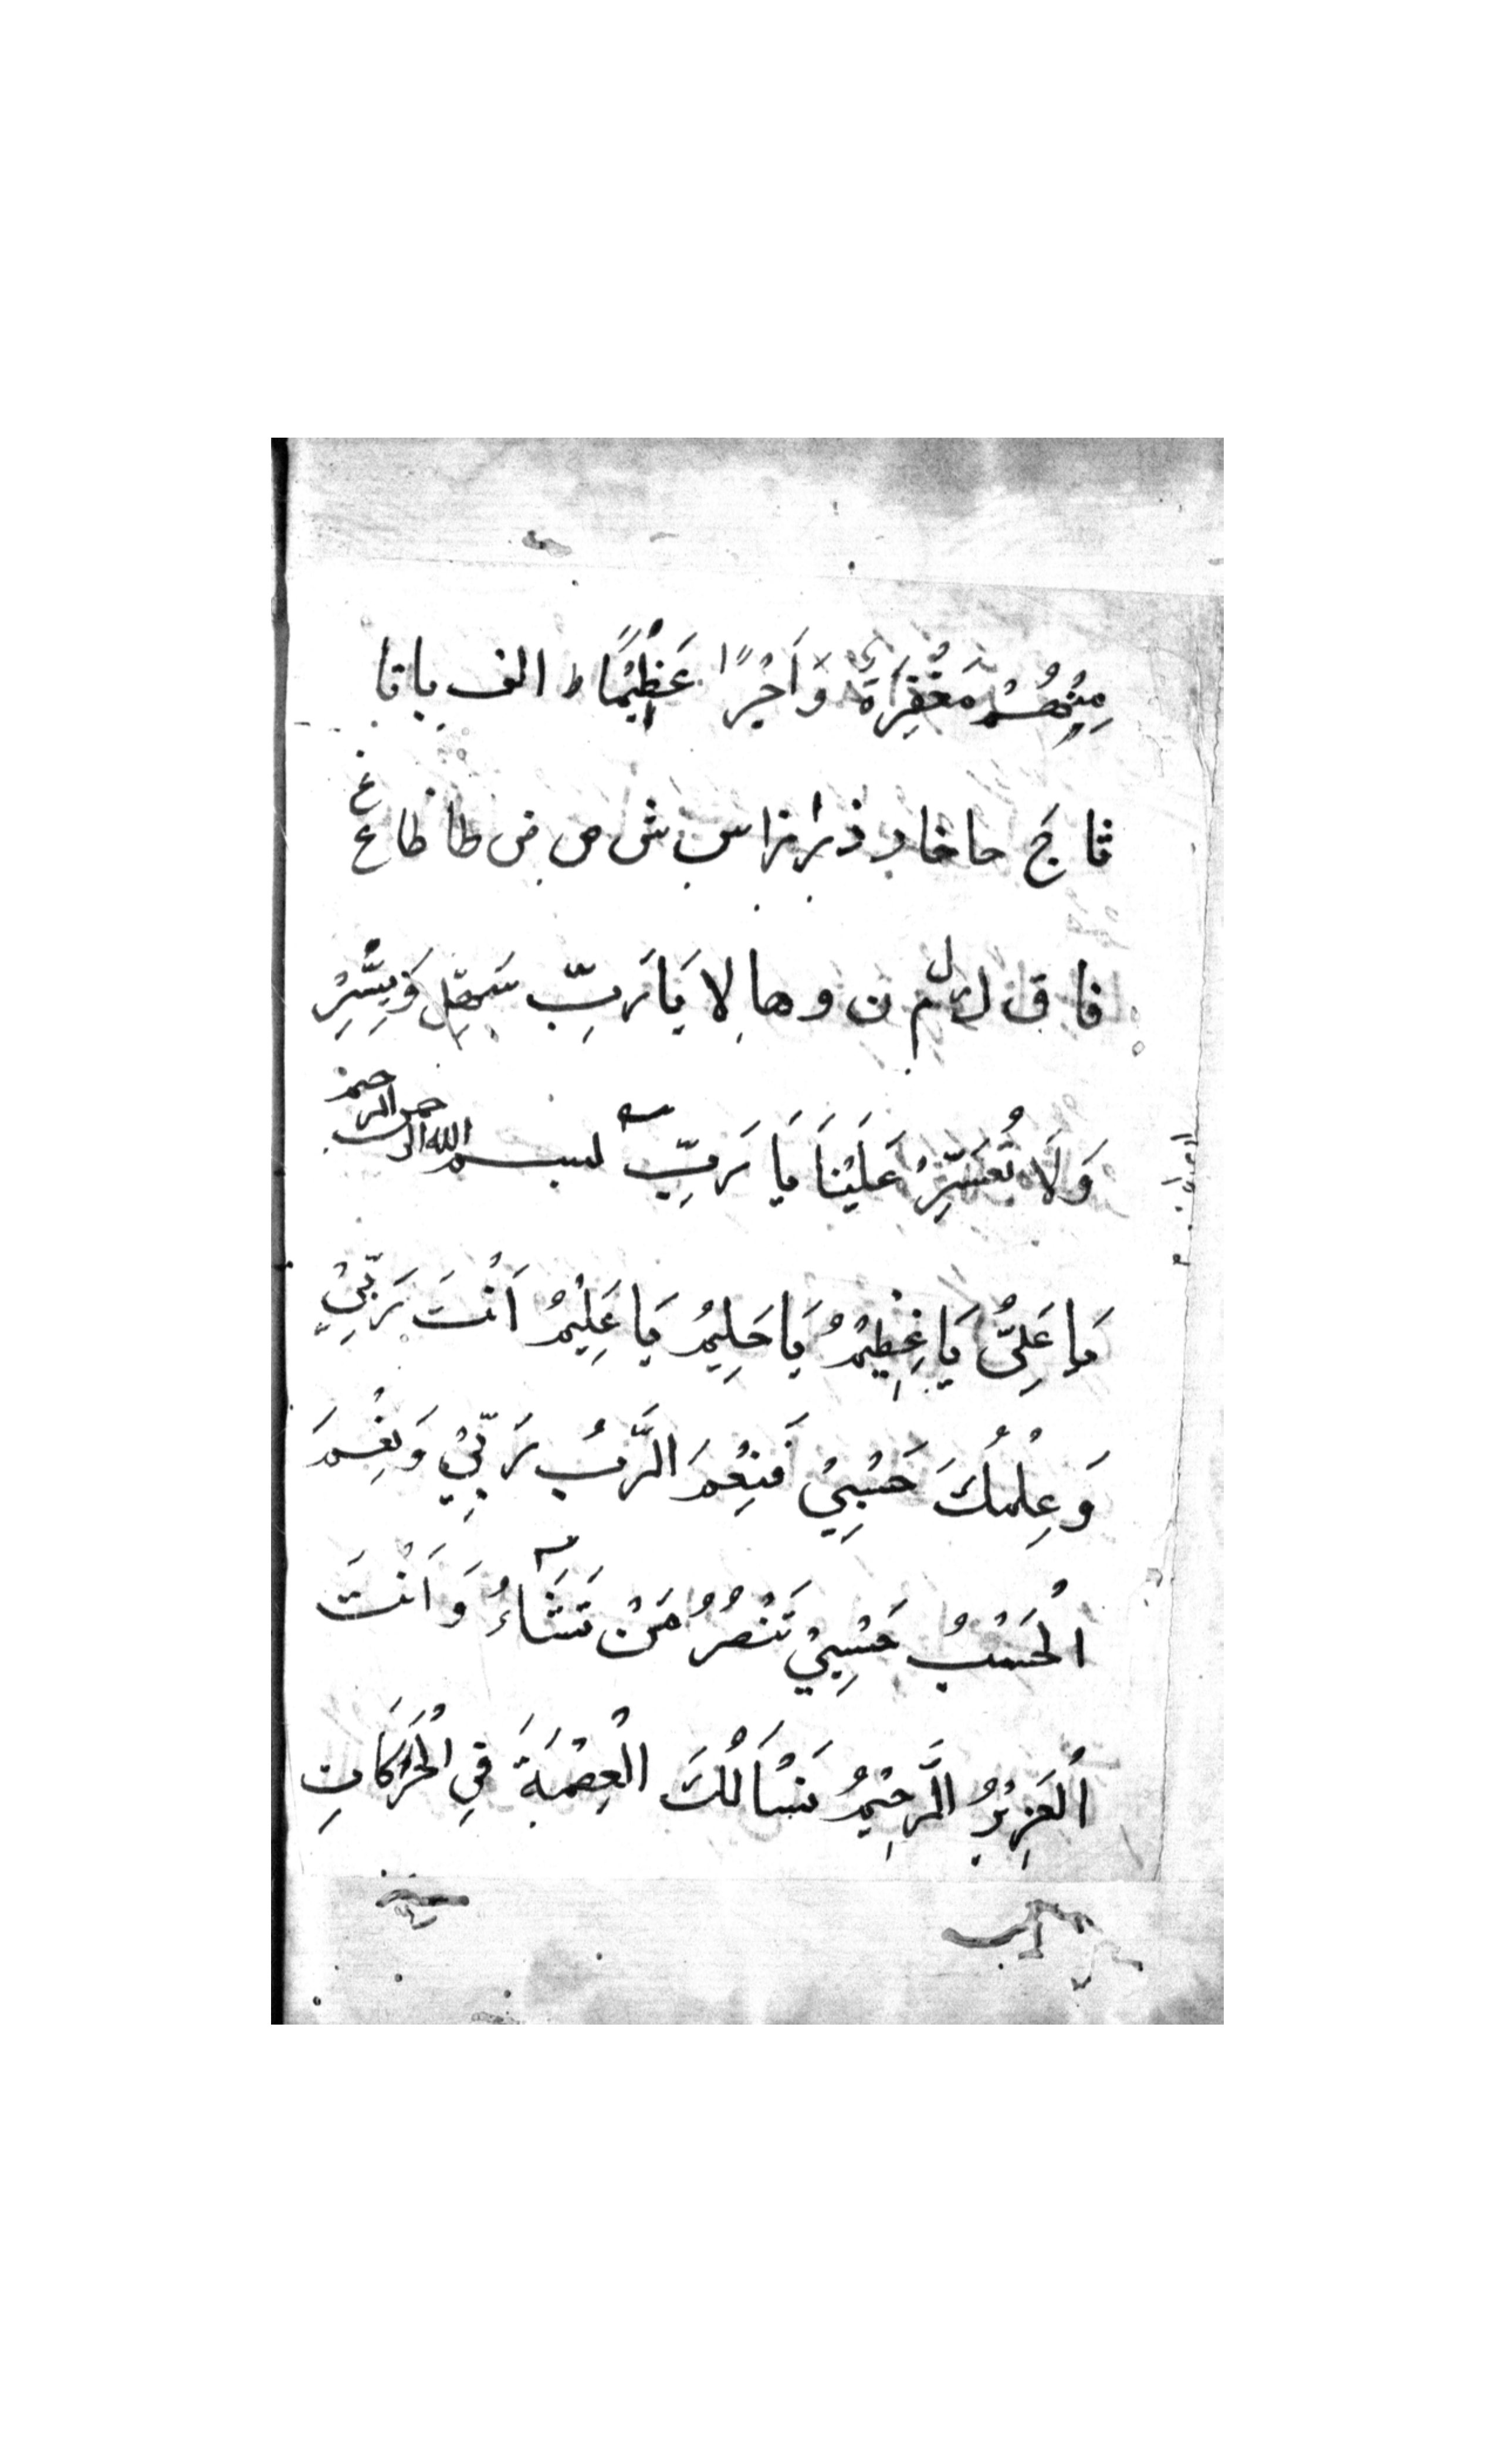 مِنْهُمْ مَغْفِرَةً وَاَجْرًا عَظِيْمًا ط الف با تا
ثا جَ حا خا د ذ را زا س ش ص ض طا ظا ع غ
فا ق ك ل م ن و ها لا يَا رَبِّ سَهِّل وَيَسِّرْ
وَلَا تُعَسِّرْ عَلَيْنَا يَا رَبِّ بسم الله الرحمن الرحيم
يَا عَلِىُّ يَا عَظِيْمُ يَا حَلِيْمُ يَا عَلِيْمُ اَنْتَ رَبِّيْ
وَعِلْمُكَ حَسْبِيْ فَنِعْمَ الرَّبُّ رَبِّيْ وَنِعْمَ
الْحَسْبُ حَسْبِيْ تَنْصُرُ مَنْ تَشَآءُ وَاَنْتَ
الْعَزِيْزُ الرَّحِيْمُ نَسْاَلُكَ الْعِصْمَةَ فِى الْحَرَكَاتِ